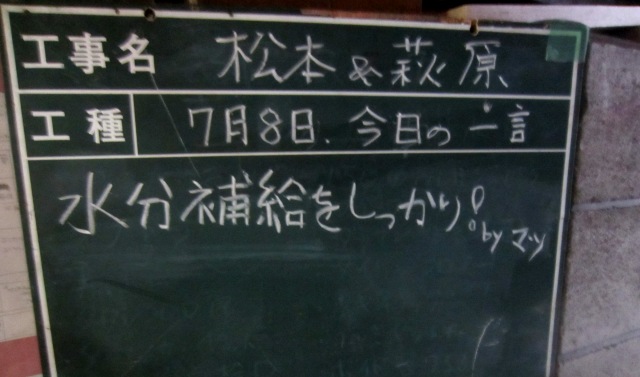 工事名 松本&萩原
工種 7月8日.今日の一言
水分補給をしっかり!
by マツ